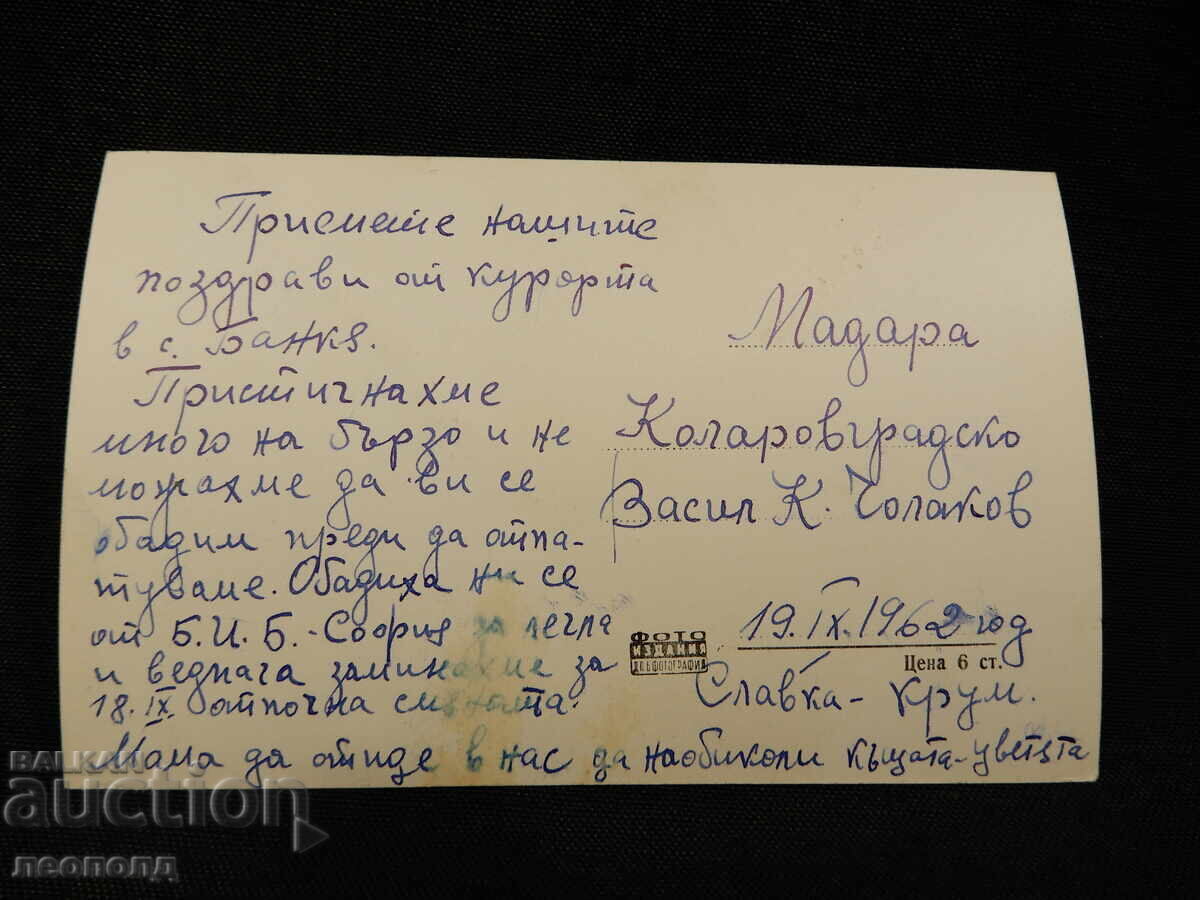 Приемете нашите
поздрави от курорта
в с. Банкя.
Пристигнахме
много на бързо и не
можахме да ви се
обадим преди да отпа-
туваме. Обадиха ни се
от Б.И.Б.-София за легла
и веднага заминахме за
18.IX. отпочна смяната.
Мама да отиде в нас да наобиколи къщата-цветята
Мадара
Коларовградско
Васил К. Чолаков
19.IX.1962 год
ФОТО
ИЗДАНИЯ
ДП БЪЛГ. ФОТОГРАФИЯ
Цена 6 ст.
Славка-Крум.
BALKAN
auction
леополд